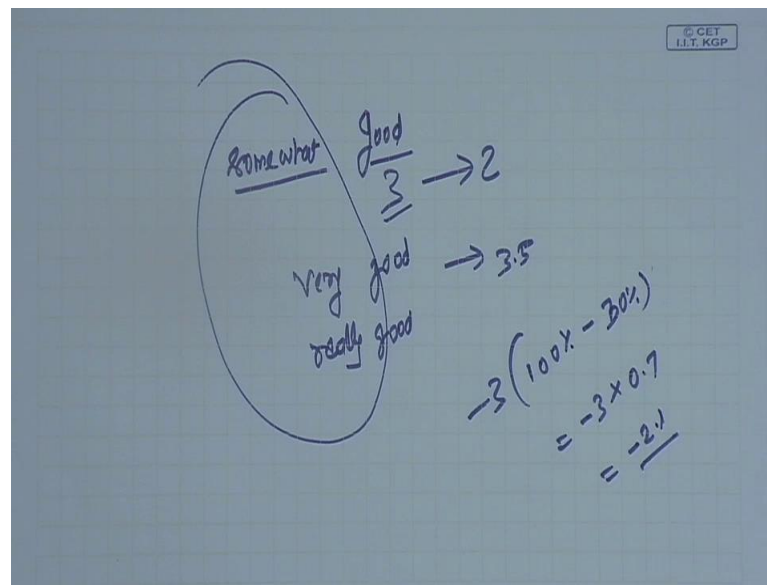 © CET
I.I.T. KGP
somewhat good
3 → 2
very good → 3.5
really good
-3 (100% - 30%)
= -3 × 0.7
= -2.1